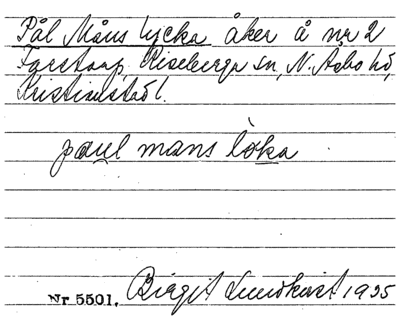 Pål Måns lycka åker å nr 2
Farstorp, Riseberga sn, N. Åsbo hd,
Kristianst. l.
paul mans lòka
Nr 5501. Birgit Lundkvist 1935